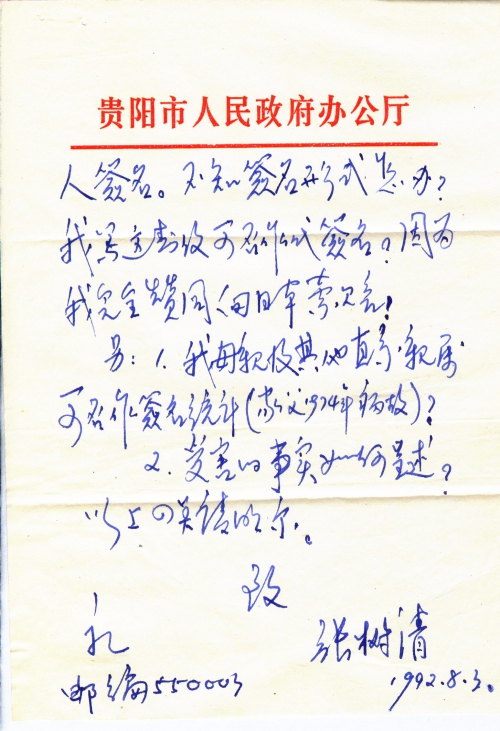 贵阳市人民政府办公厅
人簽名。不知簽名形式怎办?
我写这封信可否作代簽名?因为
我完全赞同向日本索赔!
另:1.我母親及其他直系親属
可否作簽名統計(家父1974年病故)?
2.受害的事实如何呈述?
以上 请
致
礼
张树清
邮编550003
1992.8.3.